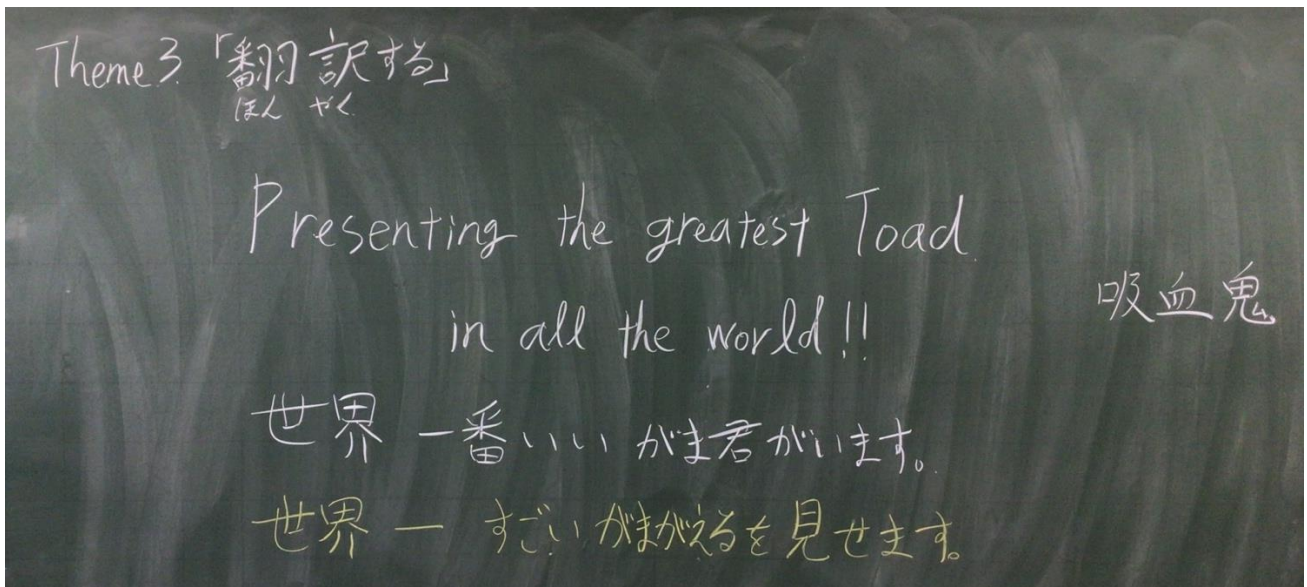 Theme 3 「翻訳する」
ほん やく
Presenting the greatest Toad
in all the world!!
吸血鬼
世界 一番いい がま君がいます。
世界 一 すごい がまがえるを見せます。